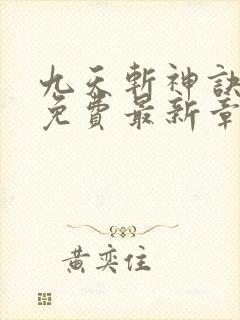 九天斬神訣
免費最新章
黃奕住